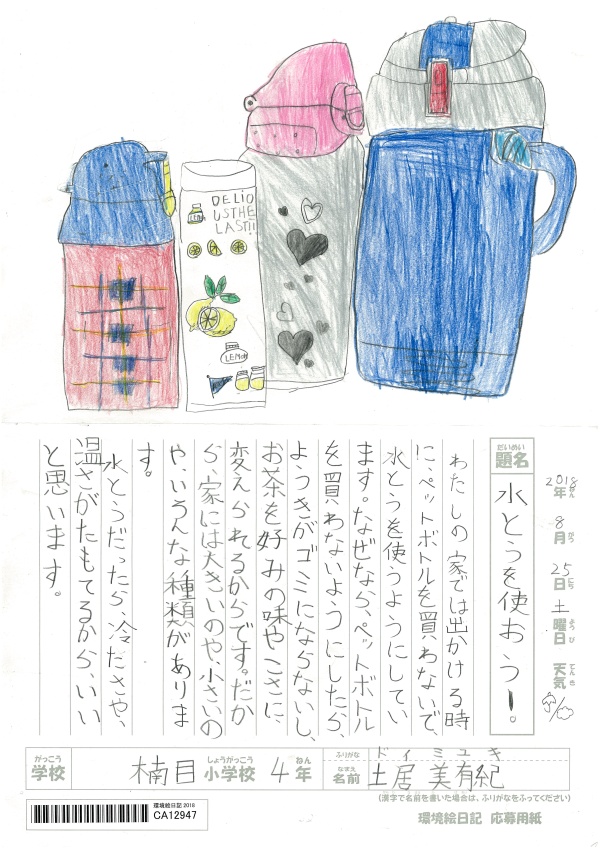 DELIO
USTHE
LAST!!
LEMON
だいめい
題名
水とうを使おうー。
2018年 8月 25日 土曜日 天気
ねん がつ にち よう び てん き
わたしの家では出かける時
に、ペットボトルを買わないで、
水とうを使うようにしてい
ます。なぜなら、ペットボトル
を買わないようにしたら、
ようきがゴミにならないし、
お茶を好みの味やこさに、
変えられるからです。だか
ら、家には大きいのや、小さいの
や、いろんな種類がありま
す。
水とうだったら、冷たさや、
温さがたもてるから、いい
と思います。
がっこう しょうがっこう ねん
学校 楠目小学校 4年
ふりがな ドイミユキ
なまえ
名前 土居 美有紀
(漢字で名前を書いた場合は、ふりがなをふってください)
環境絵日記 2018
CA12947
環境絵日記 応募用紙